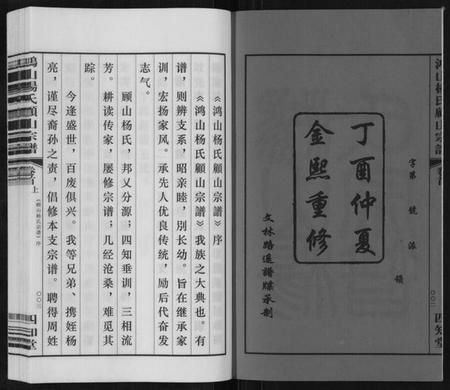 鸿山杨氏顾山宗谱
卷首
〇〇二
四知堂
字第 號 派 領
丁酉仲夏
金熙重修
文林路遥谱牒承制
《鸿山杨氏顾山宗谱》序
《鸿山杨氏顾山宗谱》我族之大典也。有
谱，则辨支系，昭亲睦，别长幼。旨在继承家
训，宏扬家风。承先人优良传统，励后代奋发
志气。
顾山杨氏，邦乂分源；四知垂训，三相流
芳。耕读传家，屡修宗谱；几经沧桑，难觅其
踪。
今逢盛世，百废俱兴。我等兄弟、携姪杨
亮，谨尽裔孙之责，倡修本支宗谱。聘得周姓
鸿山楊氏顧山宗譜
卷首上
《鸿山杨氏宗谱》序
〇〇三
四知堂